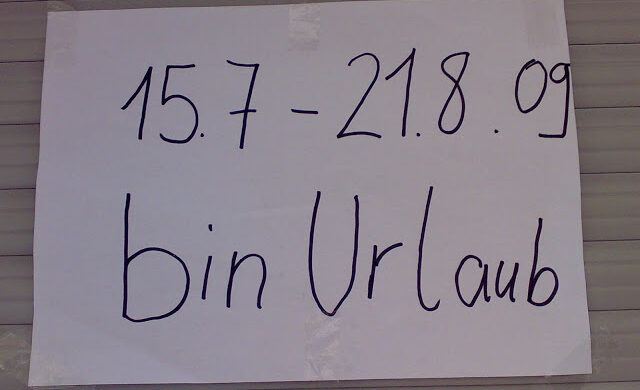 15.7 - 21.8.09
bin Urlaub